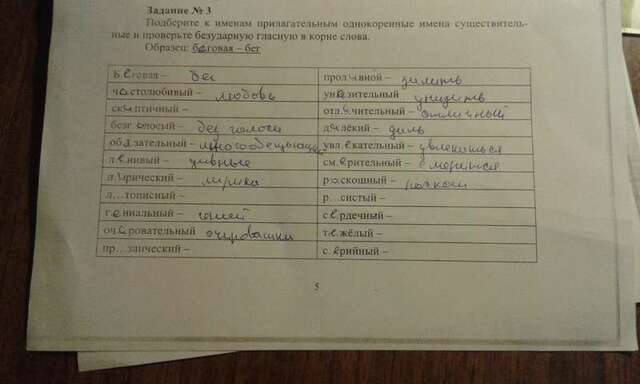 Задание № 3
Подберите к именам прилагательным однокоренные имена существитель-
ные и проверьте безударную гласную в корне слова.
Образец: беговая – бег
беговая – бег
проливной – залить
честолюбивый – любовь
унизительный унизить
скептичный –
отличительный – отличный
безголосый – без голоса
далёкий – даль
обязательный – многообещающий
увлекательный – увлекаться
ленивый –
смирительный – смириться
лирический – лирика
роскошный –
л...тописный –
р...систый –
гениальный – гений
сердечный –
очаровательный очаровашка
тяжёлый –
пр...заический –
с.ерийный –
5